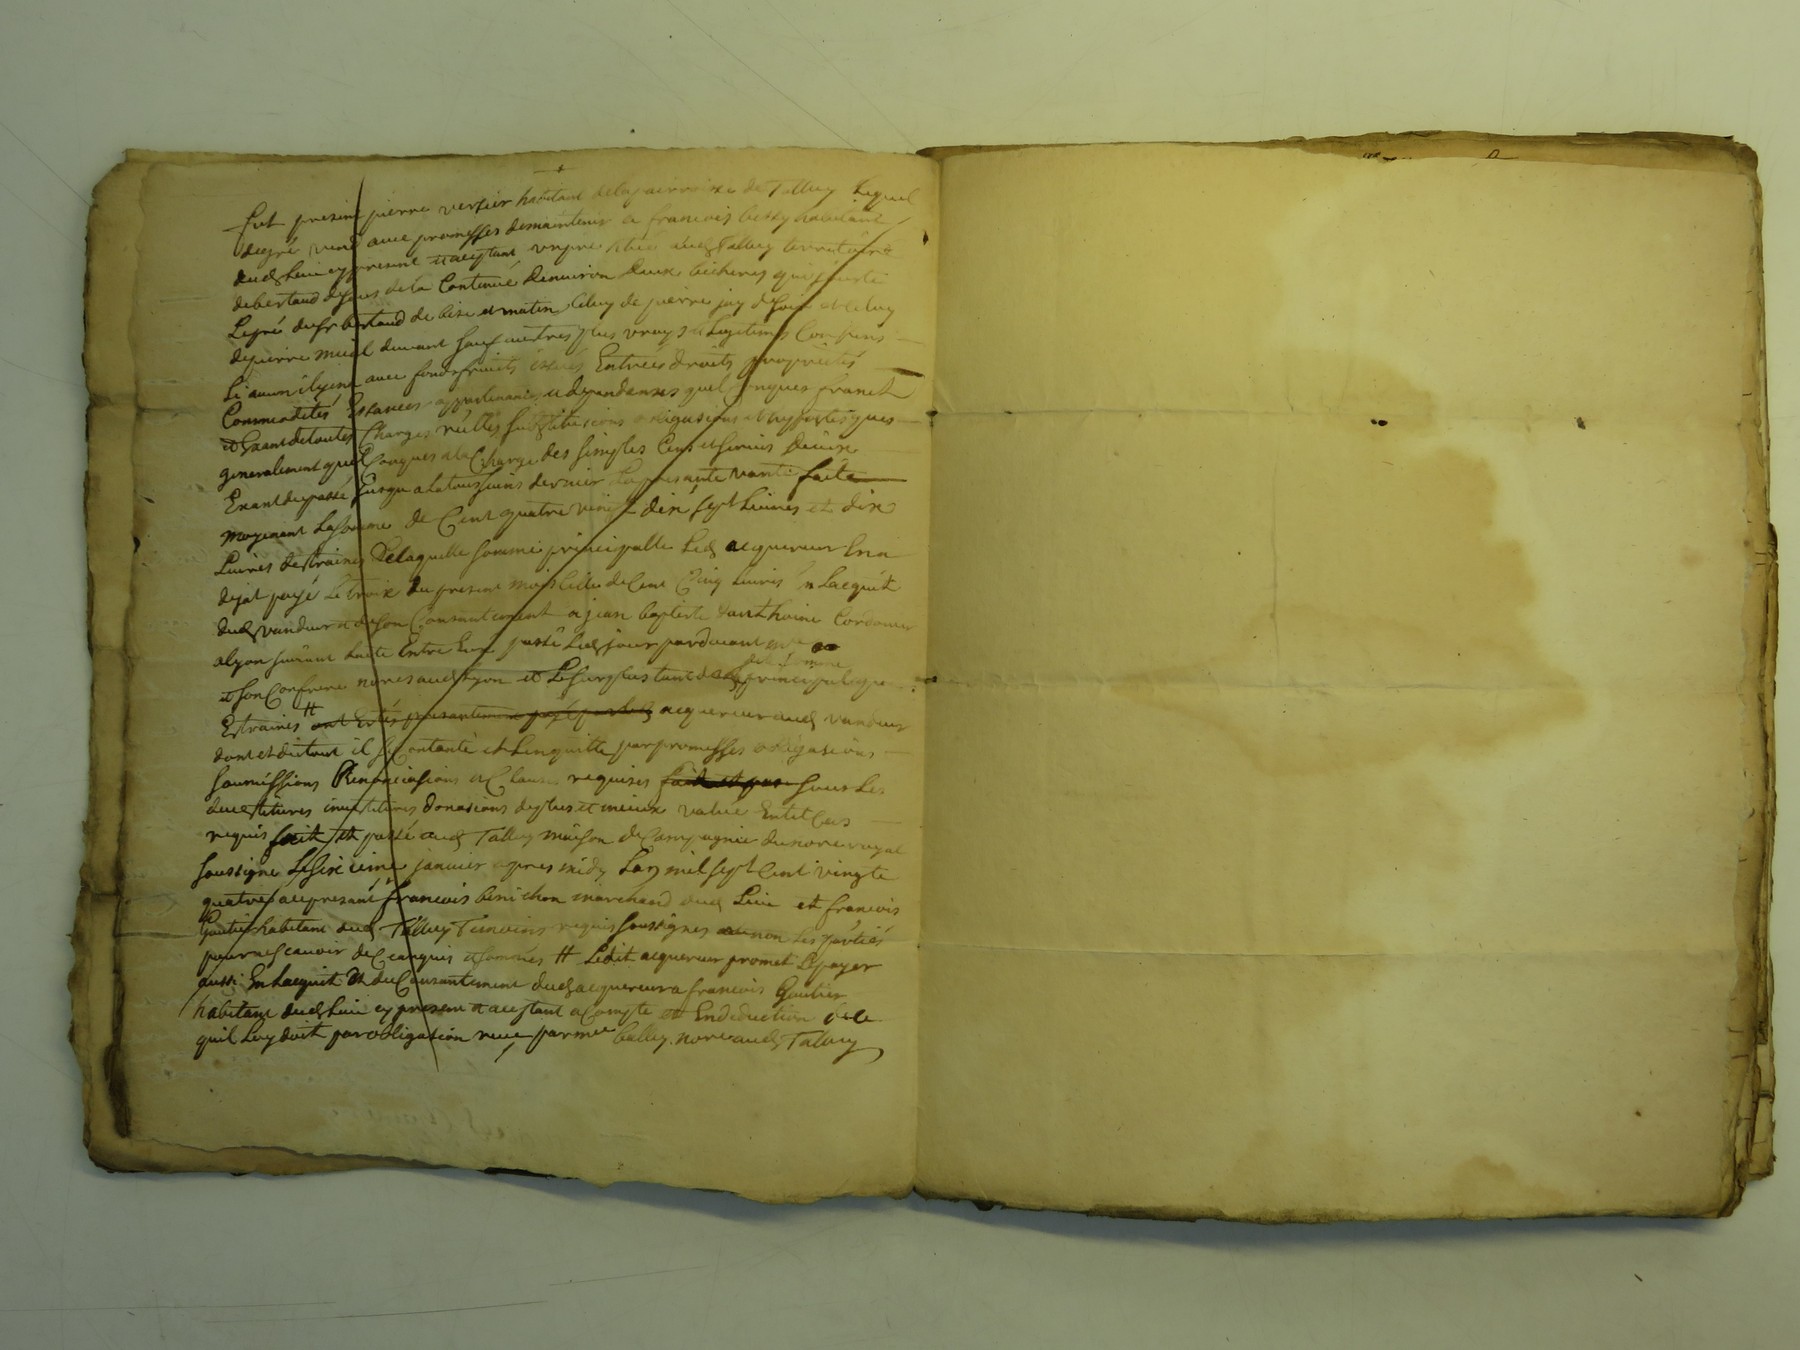 fut present pierre versier habitant de la parroisse de Talluy Lequel
degré vend avec promesses de maintenir a francois bessy habitant
dud Lieu cy present et aceptant, un pré situé aud Talluy territoire
de bertaud de la Contenue denviron deux bicherés qui jouste
Le pré du sr bertaud de bise et matin Celuy de pierre jay de soir et celuy
de pierre de vant sauf autres plus vrays et Legitimes Confins
si aucun il y en a avec fonds fruits Entrées droits proprietés
Commodités appartenances et dependances quelconques franch
et Exant de toutes Charges substitucions obligasions et
generalement quelConques a la Charge des simples Cens et servis
Exant du passé jusqua la toussains dernier La presante vante faite
moyenant La somme de Cent quatre vingt dix sept Livres et dix
Livres destraines De laquelle somme principalle Led acquereur En a
dejat payé Le troix du present mois Celle de Cent Cinq Livres En Lacquit
dud vandeur et de son Consantement a jean baptiste Cordonier
a lyon suivant Entre Eux passé Led jour pardevant
et son Confrere nores aud Lyon et Le surplus tant de lad principal que
dite somme
Estraines # ont Estés presantement payé par led acquereur aud vandeur
dont et du tout il se Contante et Len quitte par promesses obligasions
soumissions Renonciasions et Clauses requises fait et passé sous Les
investitures donasions de plus et mieux value Entel Cas
requis fait et passé aud Talluy maison de Campagnie du nore royal
soussigné Le janvier apres midy Lan mil sept Cent vingte
quatre francois benichon marchand aud Lieu et francois
Gautier habitant aud Talluy Temoins requis soussignes non Les parties
pour ne scavoir de Ce enquis et sommés # Ledit acquereur promet Le payer
aussi En Lacquit Et du Consantement dud acquereur a francois Gautier
habitant dud Lieu cy present et aceptant a Compte et En deduction de Ce
quil Luy doit par obligasion receue par me nore aud Talluy